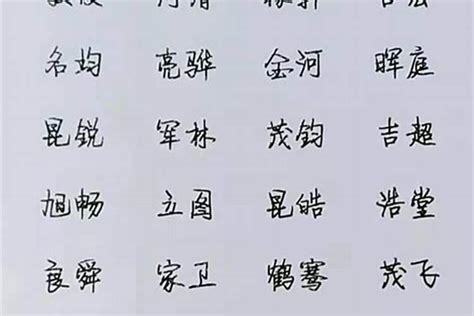 名均 亮骅 金河 晖庭
昆锐 军林 茂钧 吉超
旭畅 立图 昆皓 浩堂
良舜 家卫 鹤骞 茂飞